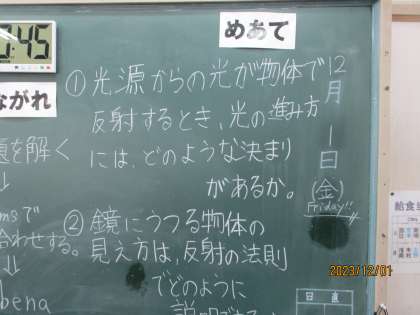 :45
めあて
① 光源からの光が物体で
反射するとき、光の進み方
には、どのような決まり
があるか。
② 鏡にうつる物体の
見え方は、反射の法則
でどのように
12月1日
(金)
Friday!!
ながれ
を解く
↓
msで
合わせする。
↓
bena
給食
日直
2023/12/01